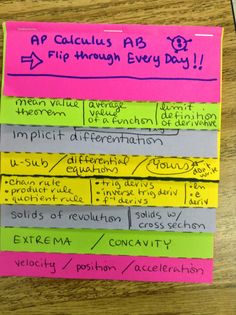 AP Calculus AB
⇨ Flip through Every Day!!
mean value theorem | average value of a function | limit definition of derivative
Implicit differentiation
u-sub / differential equations / Yours
• chain rule • trig derivs • ln
• product rule • inverse trig deriv • e
• quotient rule • f⁻¹ derivs deriv
solids of revolution | solids w/ cross section
EXTREMA / CONCAVITY
velocity / position / acceleration